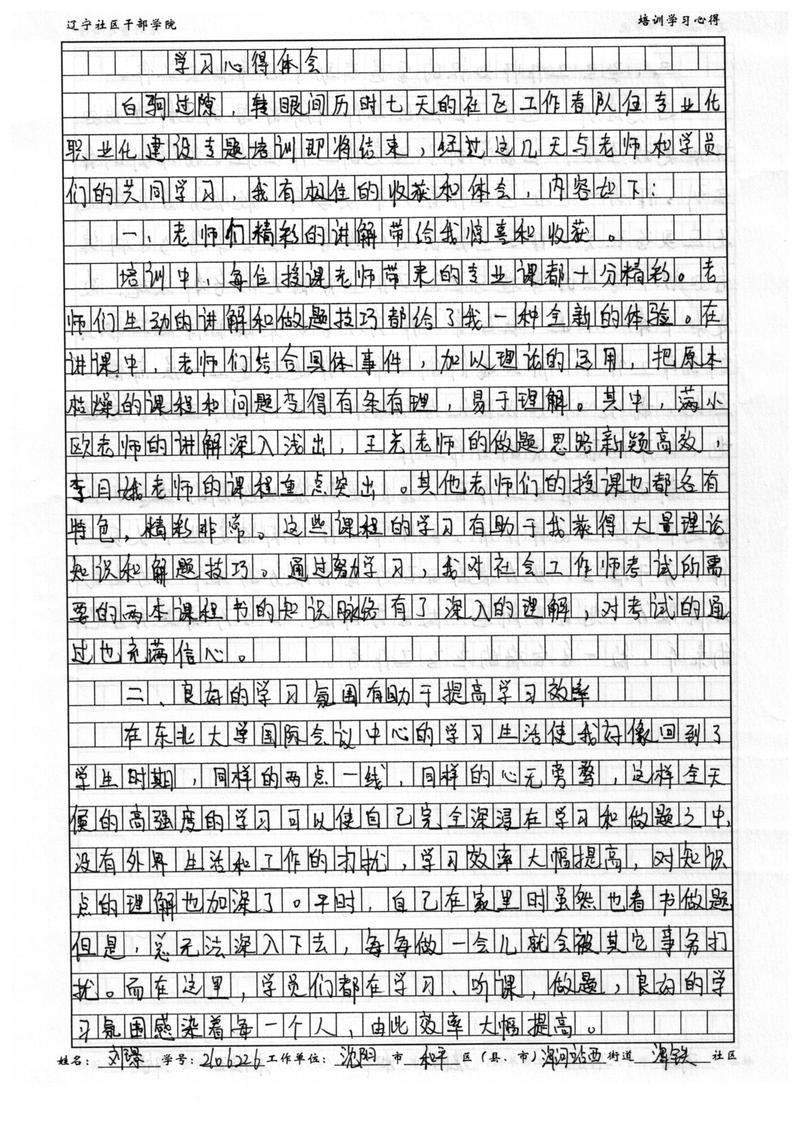 辽宁社区干部学院 培训学习心得
学习心得体会
白驹过隙，转眼间历时七天的社区工作者队伍专业化
职业化建设专题培训即将结束，经过这几天与老师和学员
们的共同学习，我有极佳的收获和体会，内容如下：
一、老师们精彩的讲解带给我惊喜和收获。
培训中，每位授课老师带来的专业课都十分精彩。老
师们生动的讲解和做题技巧都给了我一种全新的体验。在
讲课中，老师们结合具体事件，加以理论的运用，把原本
枯燥的课程和问题变得有条有理，易于理解。其中，满小
欧老师的讲解深入浅出，王老师的做题思路新颖高效，
李月娥老师的课程重点突出。其他老师们的授课也都各有
特色，精彩非常。这些课程的学习有助于我获得大量理论
知识和解题技巧。通过努力学习，我对社会工作师考试所需
要的两本课程书的知识脉络有了深入的理解，对考试的通
过也充满信心。
二、良好的学习氛围有助于提高学习效率
在东北大学国际会议中心的学习生活使我好像回到了
学生时期，同样的两点一线，同样的心无旁骛，这样全天
候的高强度的学习可以使自己完全深浸在学习和做题之中，
没有外界生活和工作的打扰，学习效率大幅提高，对知识
点的理解也加深了。平时，自己在家里时虽然也看书做题
但是，总无法深入下去，每每做一会儿就会被其它事务打
扰。而在这里，学员们都在学习、听课，做题，良好的学
习氛围感染着每一个人，由此效率大幅提高。
姓名： 刘 学号：2106226 工作单位： 沈阳 市 和平 区（县、市） 浑河站西 街道 社区